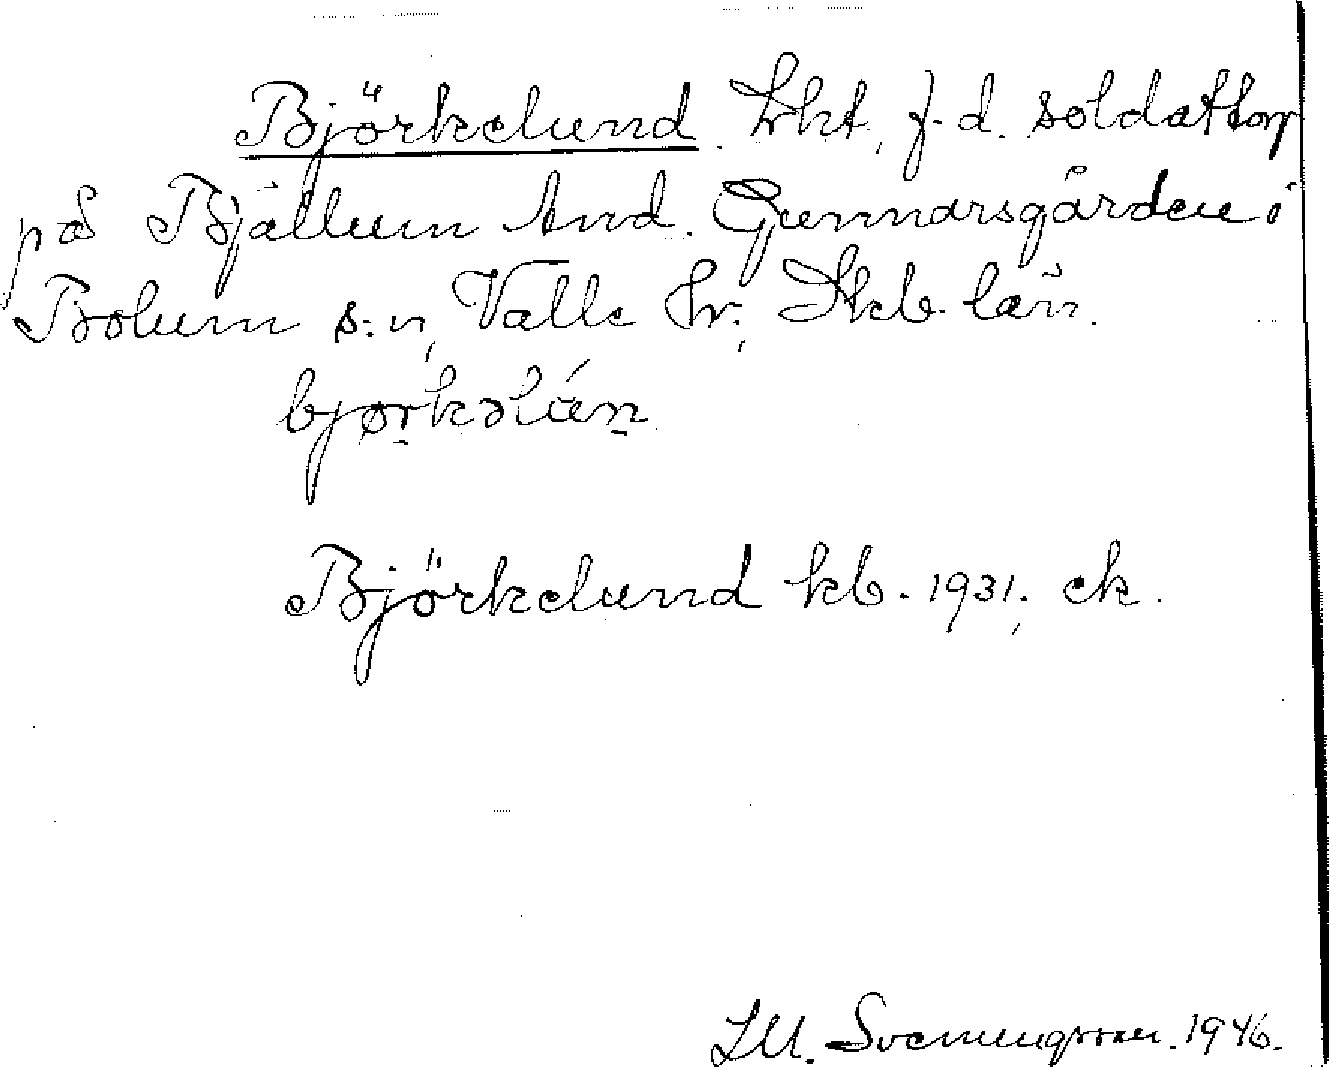 Björkelund. Lht, f.d. soldattorp
på Bjällum And. Gunnarsgården i
Bolum s:n, Valle hr, Skb. län.
bjørkəlúṉ
Björkelund kb. 1931, ek.
Svenungsson. 1946.